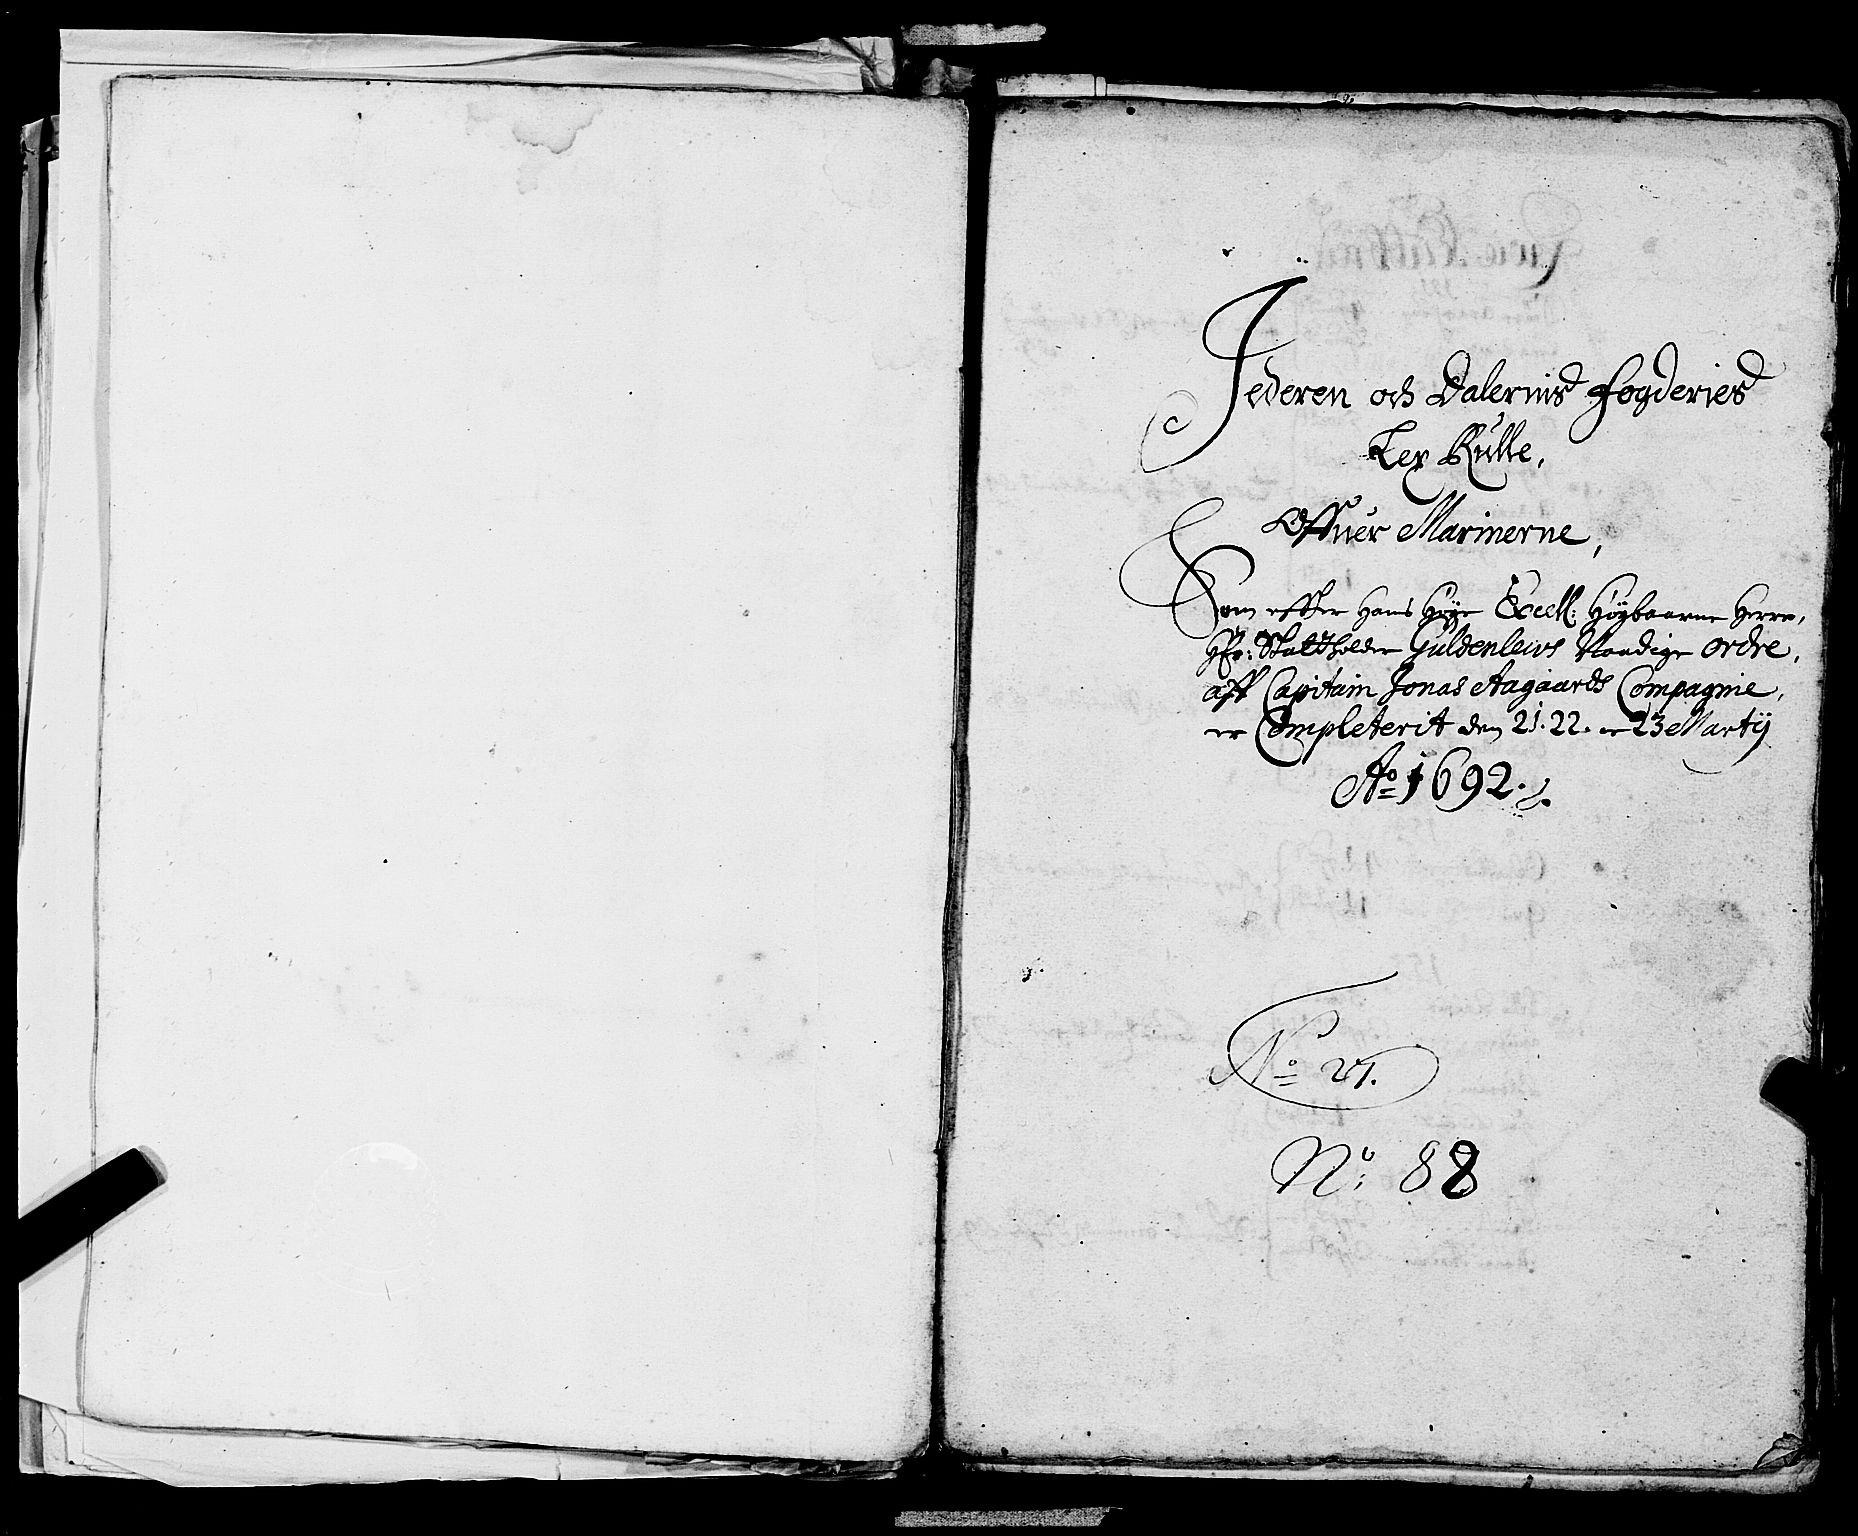 Jederen och Dalernis Fogderies
Lex Rulle,
Offuer Marinerne,
Som effter Hans Høye Excell: Høybaarne Herre,
Hr: Statholder Güldenlews Naadige ordre,
aff Capitain Jonas Aagaards Compagnie,
er Completerit den 21. 22. oc 23 Martij
Ao 1692.
No 27.
No: 88